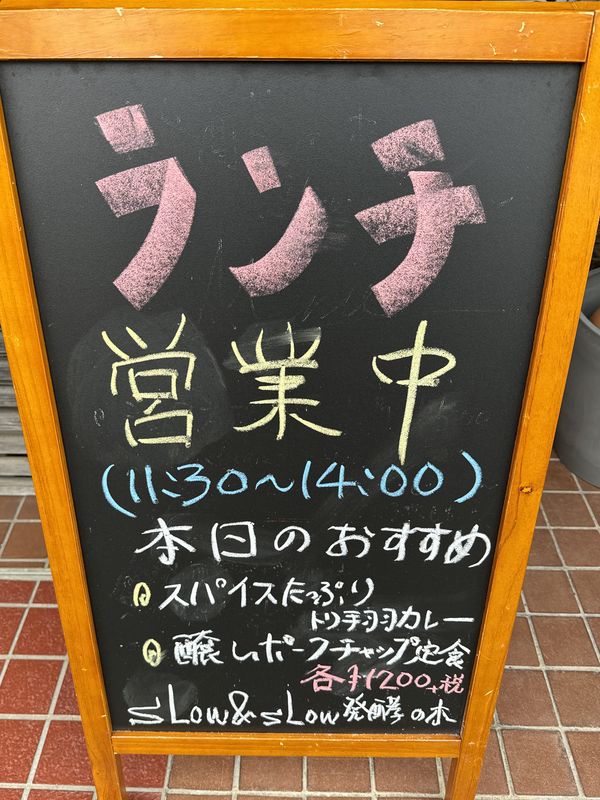 ランチ
営業中
(11:30～14:00)
本日のおすすめ
スパイスたっぷり
トリ手羽カレー
醸しポークチャップ定食
各¥1200+税
sLow&sLow発酵の木